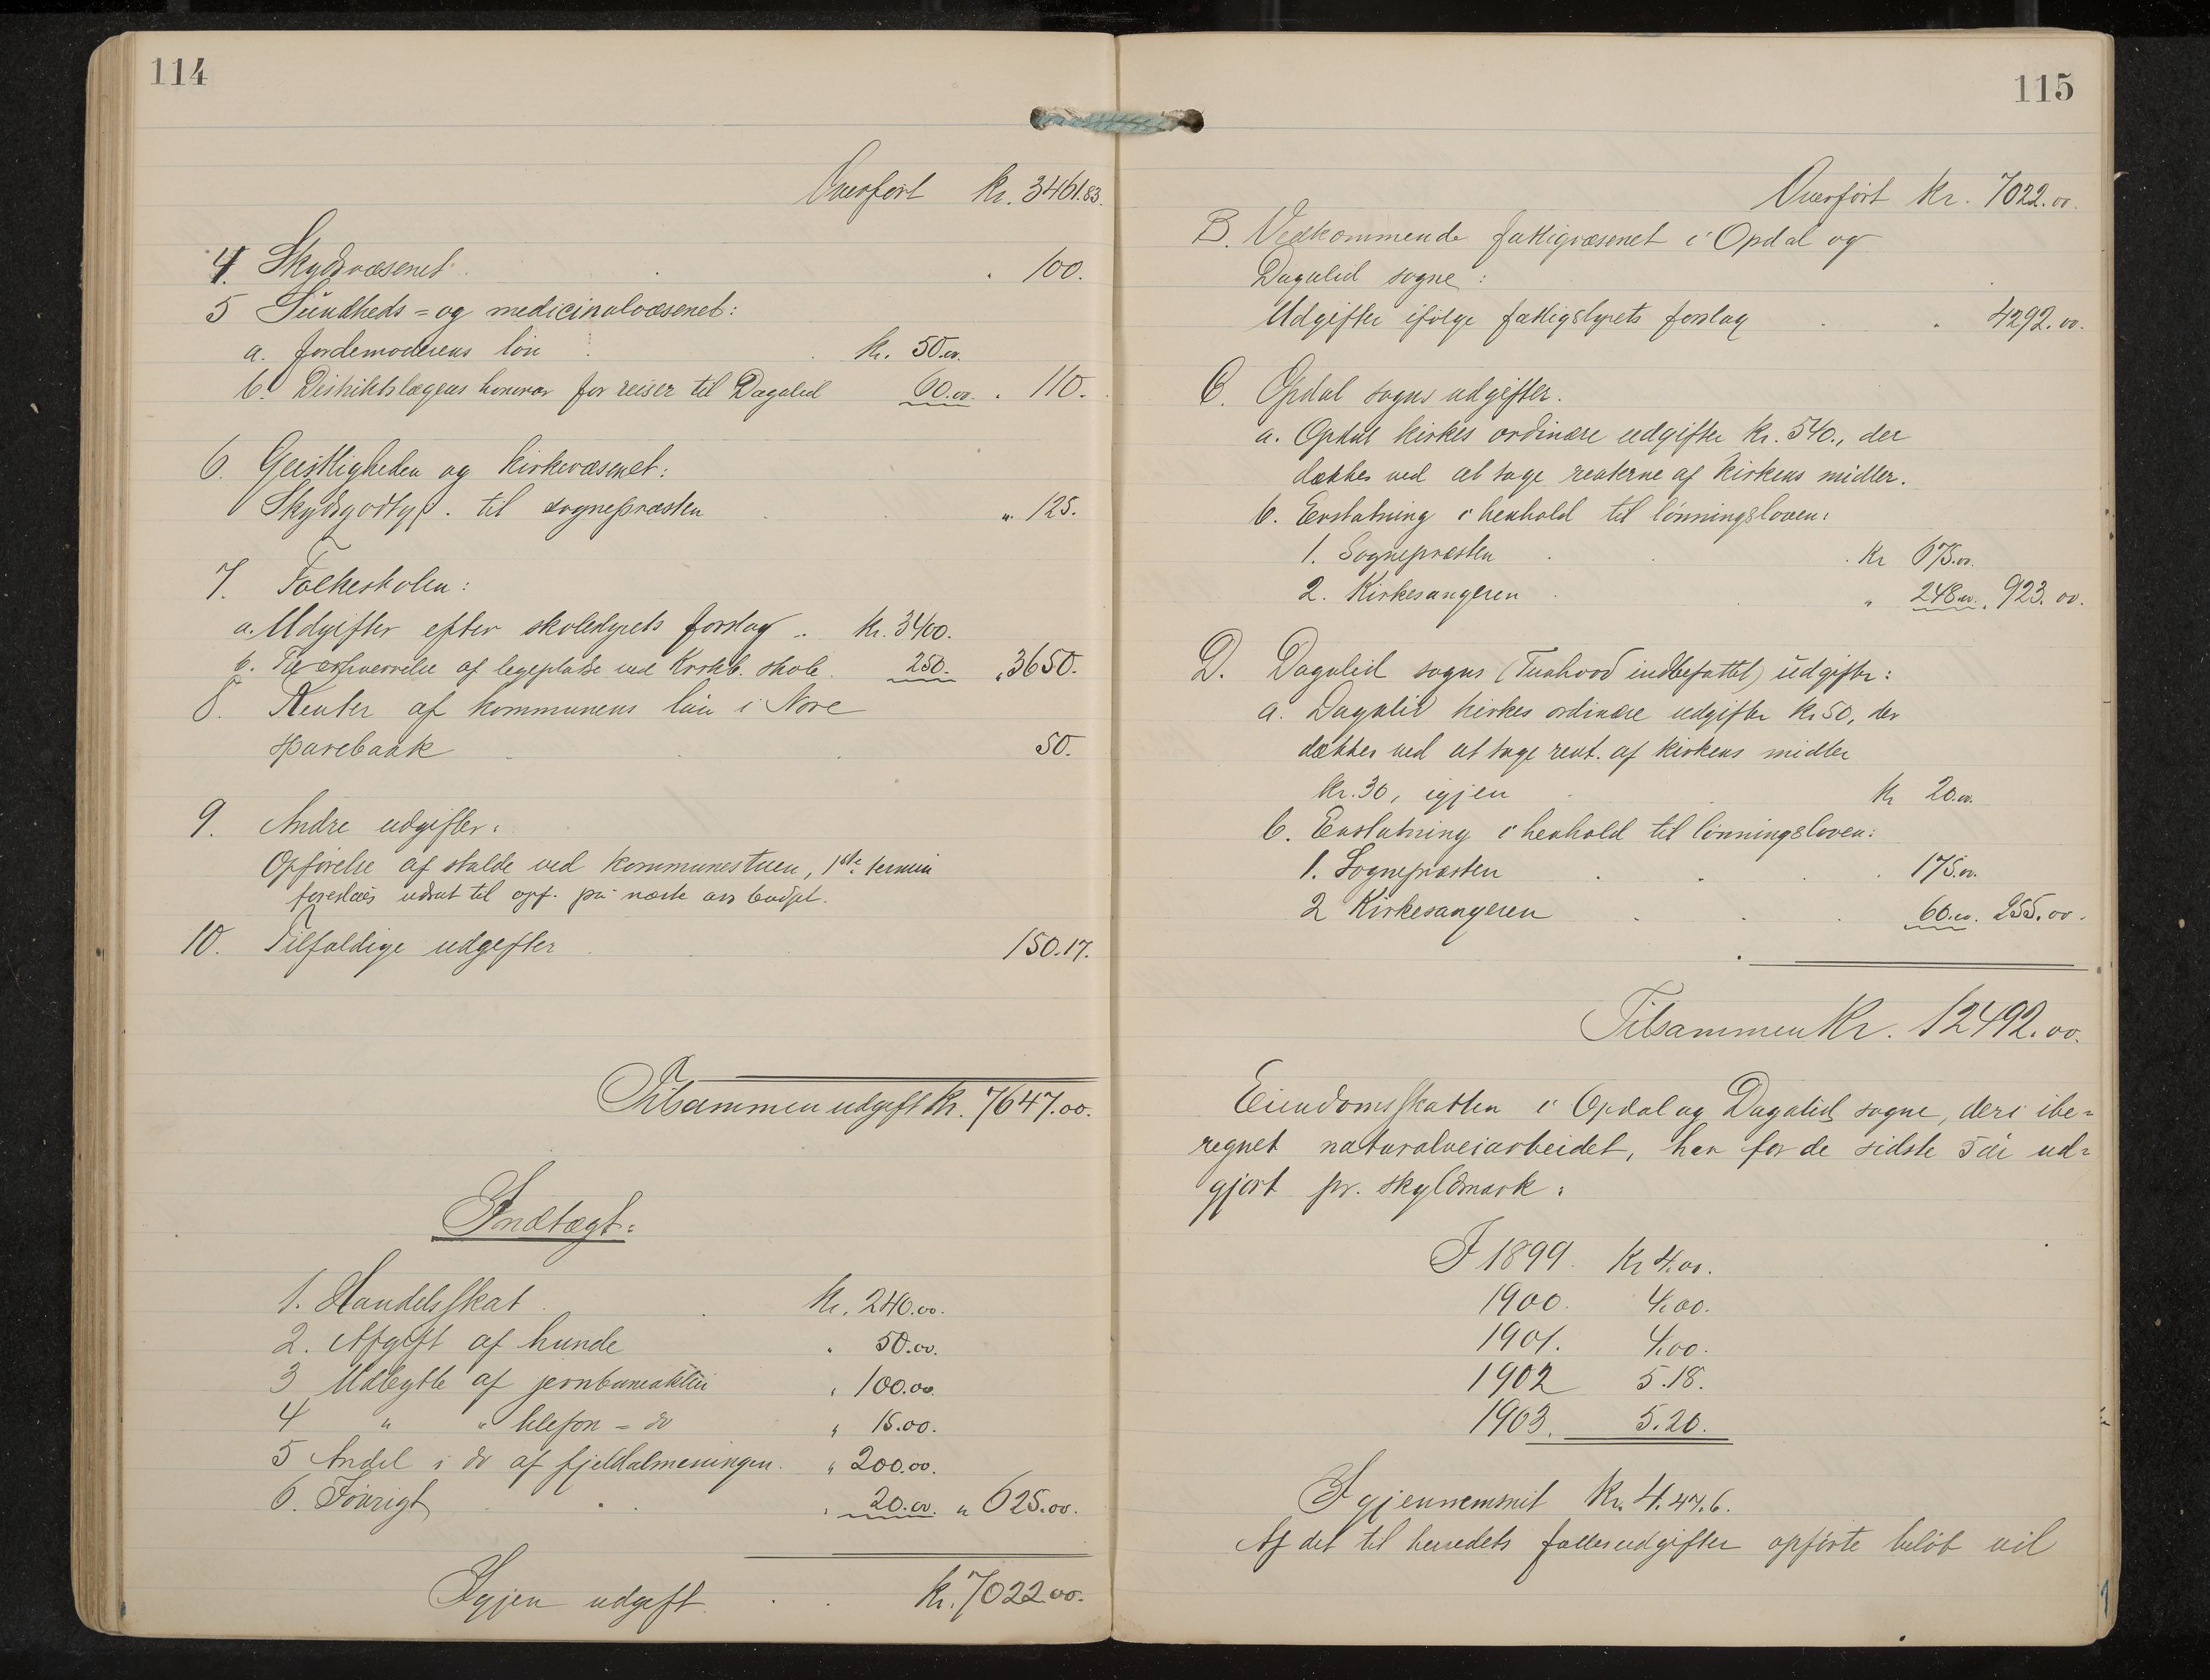 114
Overført kr. 3461.83.
4. Skydsvæsenet . . 100.
5 Sundheds= og medicinalvæsenet:
a. Jordemoderens løn . kr. 50.00.
b. Distriktslægens honorar for reiser til Dagalid 60.00. . 110.
6. Geistligheden og kirkevæsenet:
Skydsgodtgj. til sognepræsten " 125.
7. Folkeskolen:
a. Udgifter efter skolestyrets forslag .. kr. 3400.
b. Til erhvervelse af legepladse ved Kirkb. skole. 250. " 3650.
8. Renter af kommunens lån i Nore
sparebank 50.
9. Andre udgifter:
Opførelse af stalde ved kommunestuen, 1ste termin
foreslåes udsat til opf. på næste års budget.
10. Tilfældige udgifter 150.17.
Tilsammen udgift kr. 7647.00.
Indtægt:
1. Handelsskat . kr. 240.00.
2. Afgift af hunde " 50.00.
3 Udbytte af jernbaneaktier " 100.00.
4 " " telefon = do " 15.00.
5 Andel i do af fjeldalmeningen. " 200.00.
6. Forøvrigt . . " 20.00. " 625.00.
Igjen udgift . . kr. 7022.00.
115
Overført kr. 7022.00.
B. Vedkommende fattigvæsenet i Opdal og
Dagalid sogne:
Udgifter ifølge fattigstyrets forslag . . 4292.00.
C. Opdal sogns udgifter.
a. Opdal kirkes ordinære udgifter kr. 540., der
dækkes ved at tage renterne af kirkens midler.
b. Erstatning i henhold til lønningsloven:
1. Sognepræsten . . Kr 675.00.
2. Kirkesangeren . " 248.00. " 923.00.
D. Dagalid sogns (Tunhovd indbefattet) udgifter:
a. Dagalid kirkes ordinære udgifter kr 50, der
dækkes ved at tage rent. af kirkens midler
kr. 30, igjen . Kr 20.00.
b. Erstatning i henhold til lønningsloven:
1. Sognepræsten . . . 175.00.
2 Kirkesangeren . . . 60.00. 255.00.
Tilsammen Kr. 12492.00.
Eiendomsskatten i Opdal og Dagalid sogne, deri ibe=
regnet naturalveiarbeidet, har for de sidste 5 år ud=
gjort pr. skyldmark:
I 1899. Kr 4.00.
1900. 4.00.
1901. 4.00.
1902 5.18.
1903. 5.20.
I gjennemsnit Kr. 4.47.6.
Af det til herredets fællesudgifter opførte beløb vil